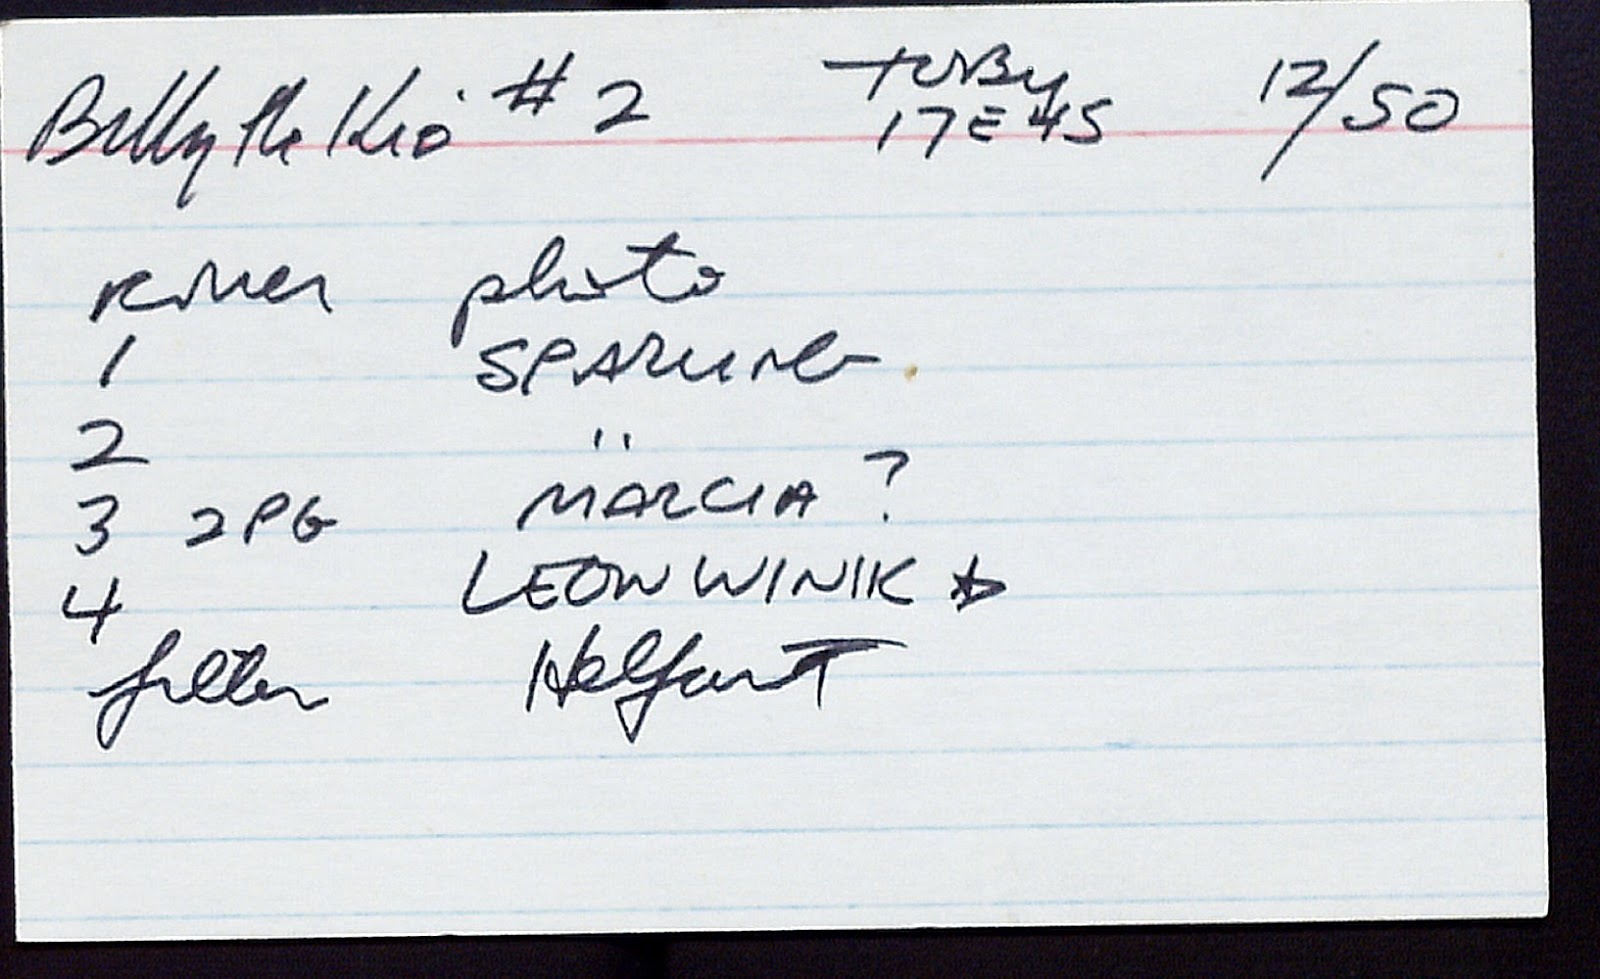 Billy the Kid #2 TOBY 12/50
17E45
cover photo
1 SPARLING
2 "
3 2PG MARCIA?
4 LEON WINIK ☆
filler Helfant